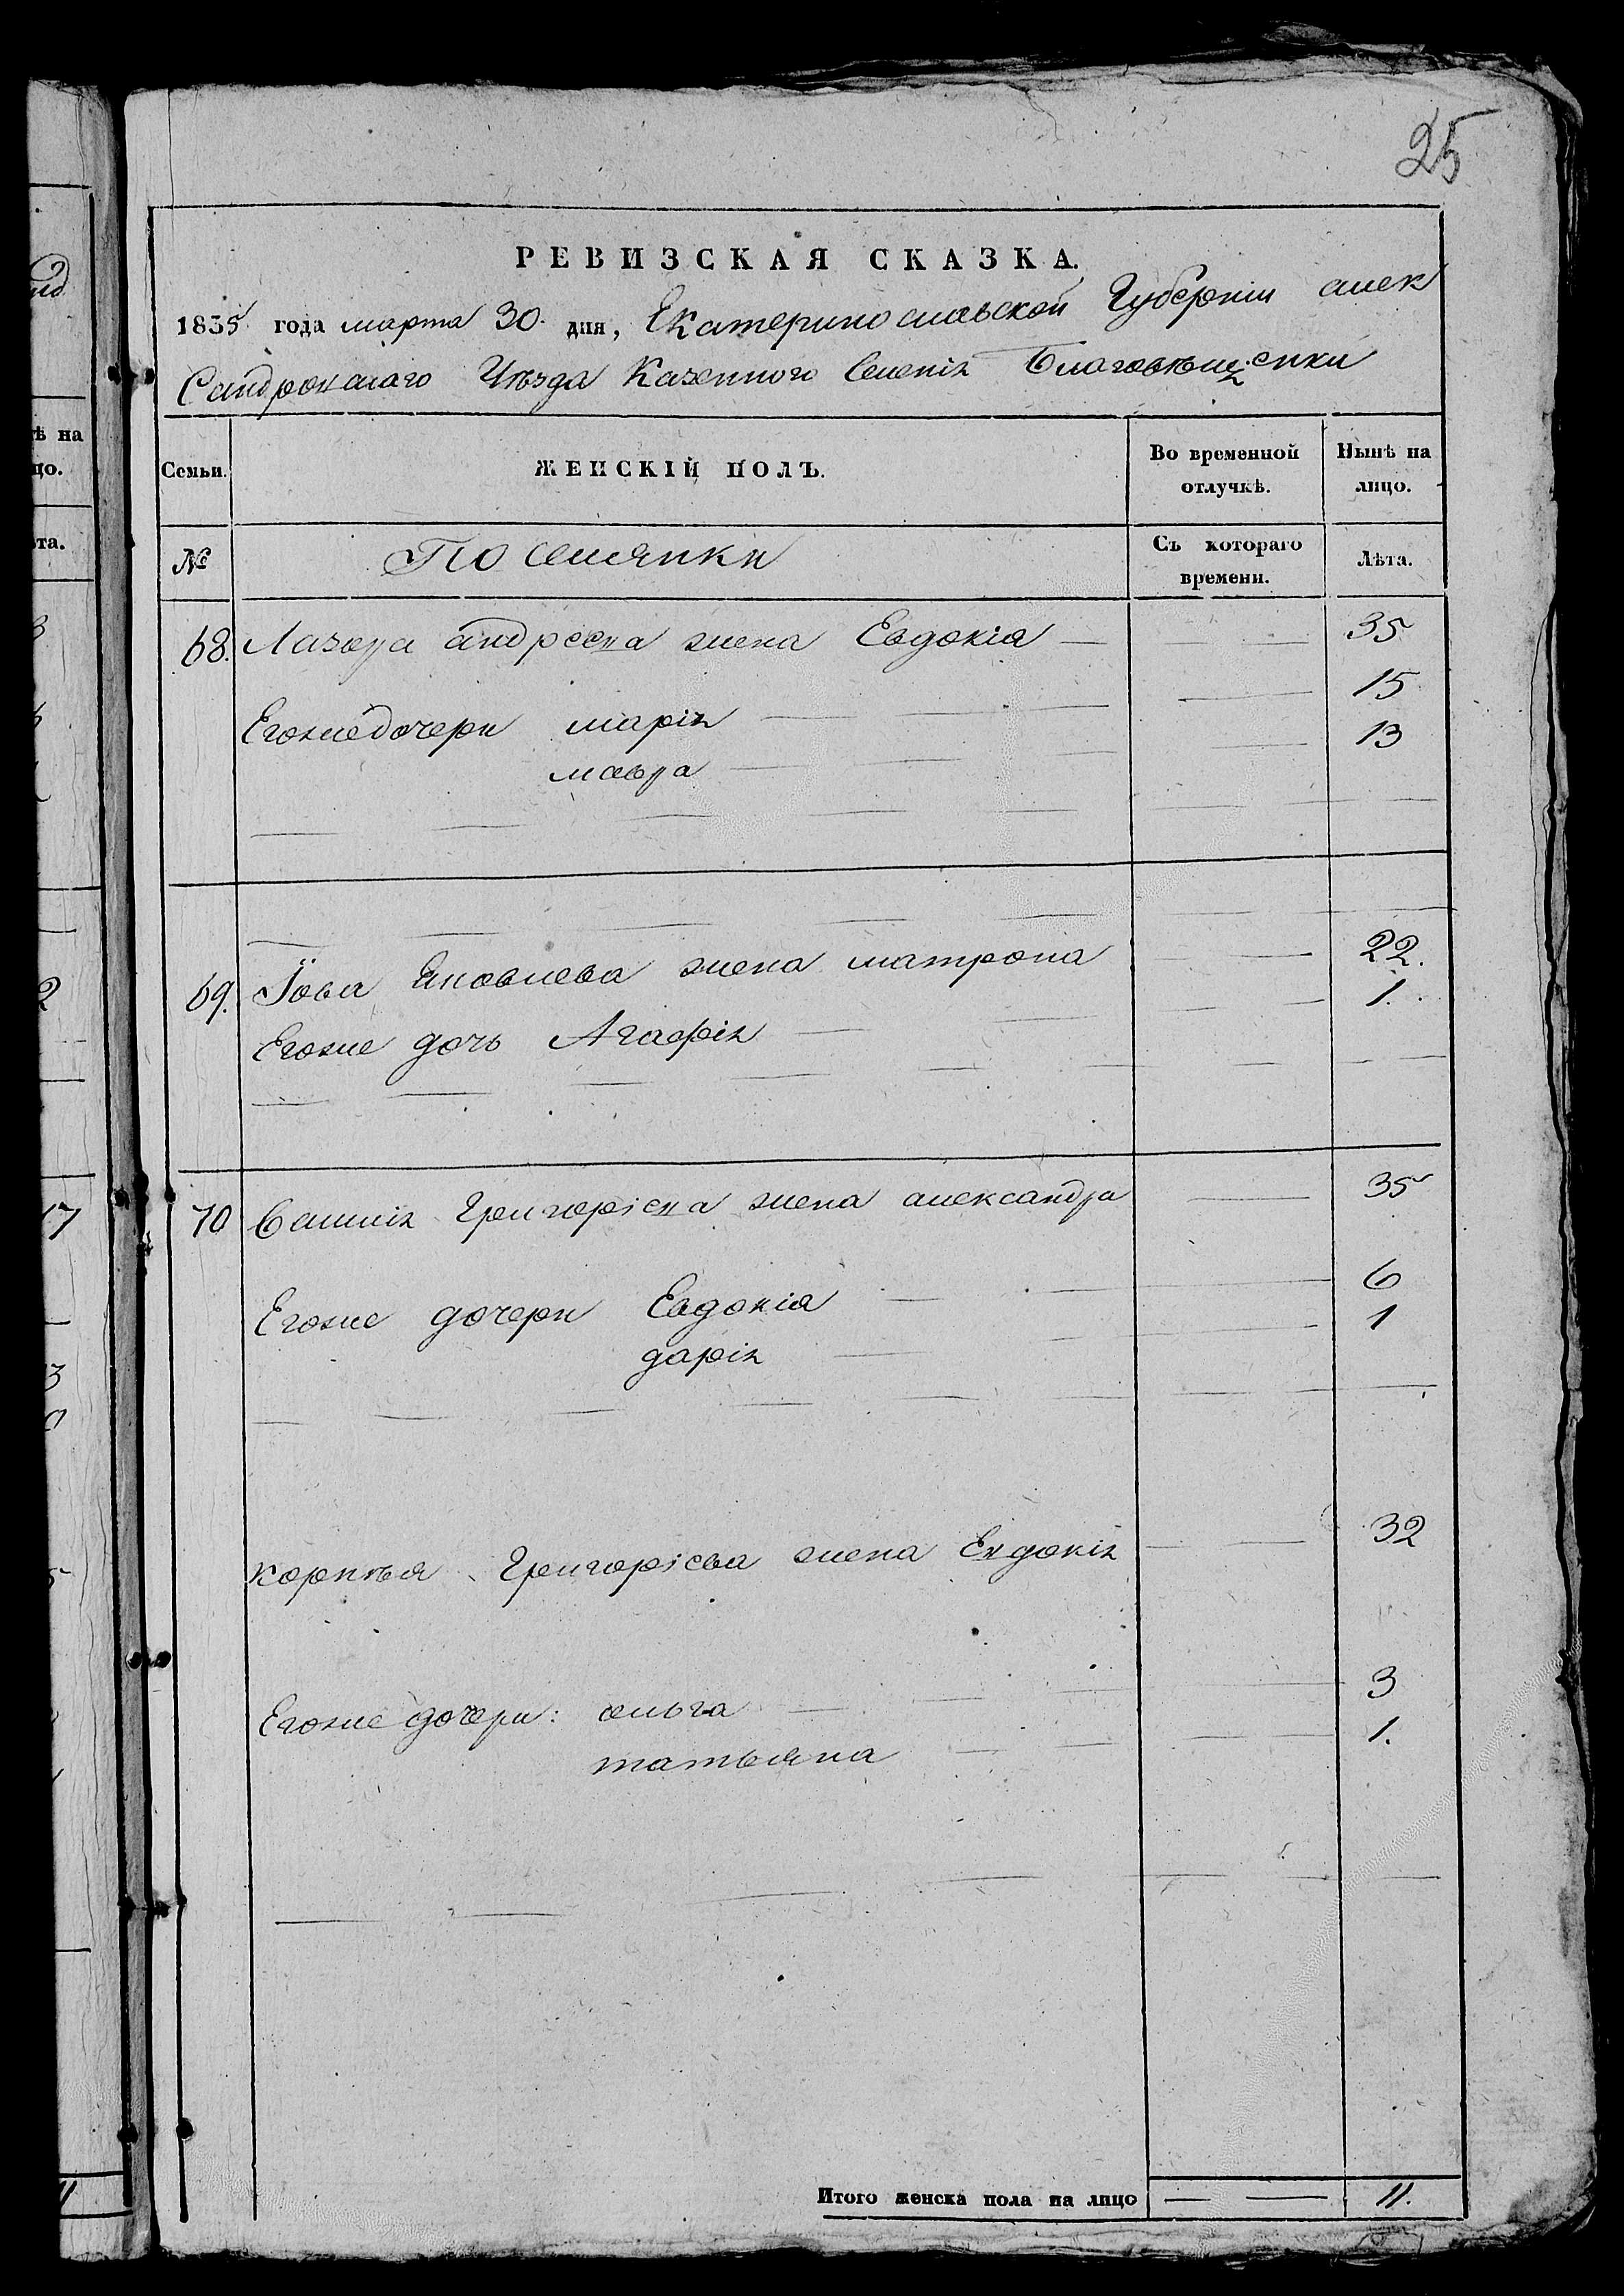 25
РЕВИЗСКАЯ СКАЗКА.
1835 года марта 30 дня, Екатеринославьской Губерніи алек
Сандровскаго Уѣзда Казенного Селенія Благовѣщенки
Семьи. ЖЕНСКІЙ ПОЛЪ. Во временной отлучкѣ. Нынѣ на лицо.
№ Поселянки Съ котораго времени. Лѣта.
68. Лазаря андреева жена Евдокія 35
Егоже дочери марія 15
мавра 13
69. Іова Яковлева жена матрона 22.
Егоже дочь Агафія 1.
70 Григоріева жена александра 35
Егоже дочери Евдокія 6
дарія 1
корнѣя Григоріева жена Евдокія 32
Егоже дочери: ольга 3
татьяна 1.
Итого женска пола на лицо 11.